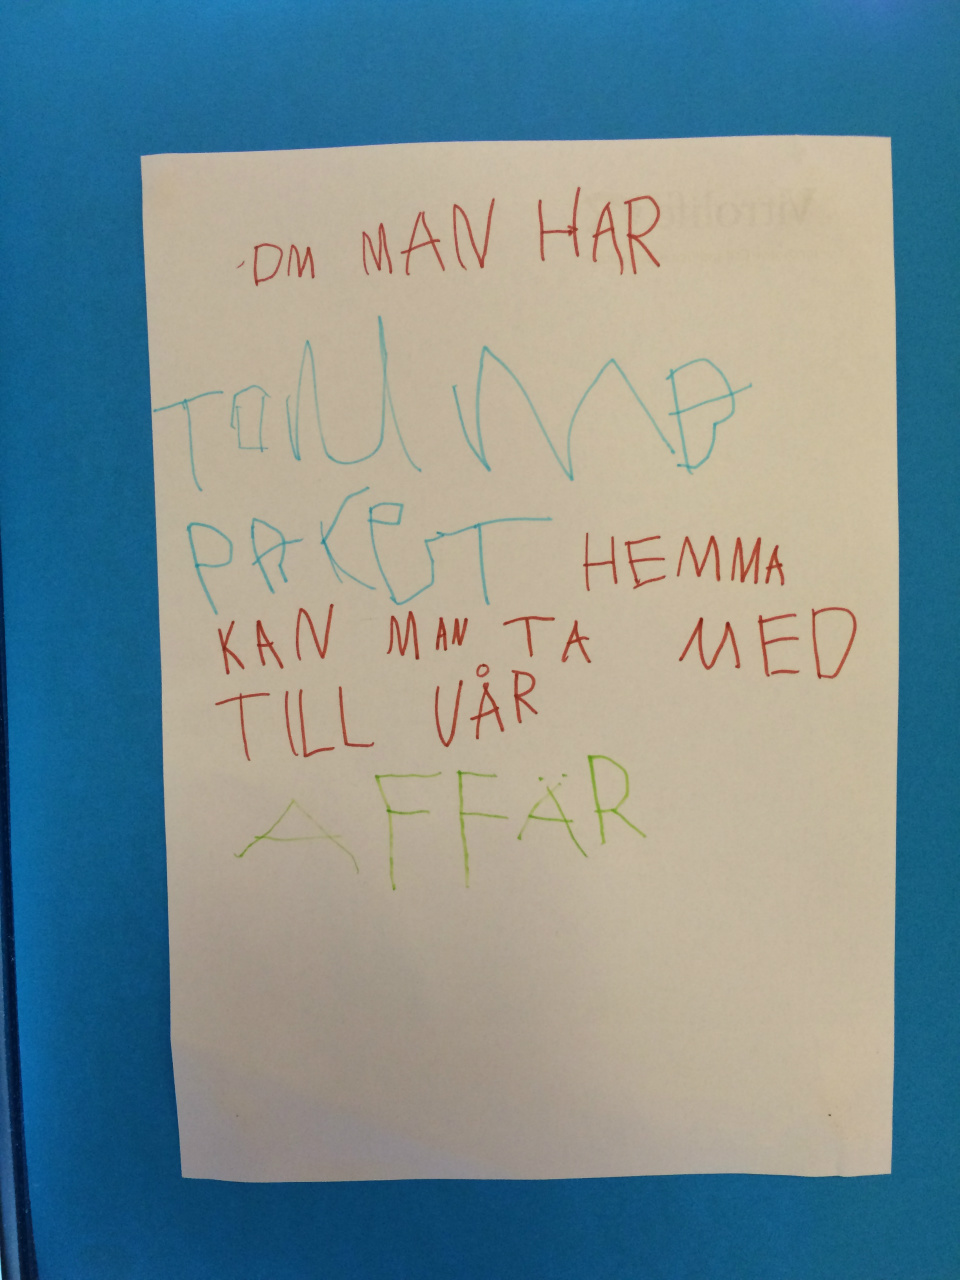 OM MAN HAR
TOMMA
PAKET HEMMA
KAN MAN TA MED
TILL VÅR
AFFÄR